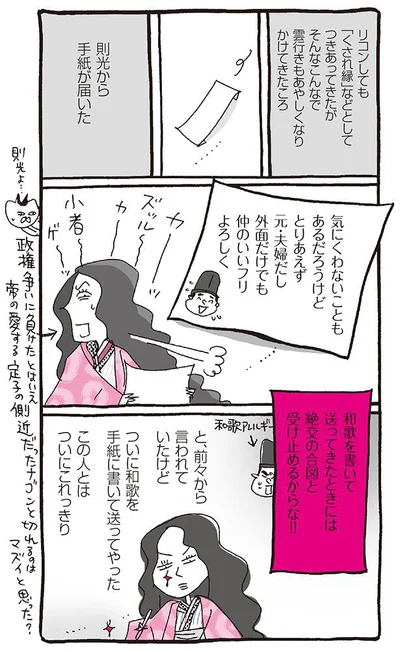 リコンしても
「くされ縁」などとして
つきあってきたが
そんなこんなで
雲行きもあやしくなり
かけてきたころ
則光から
手紙が届いた
気にくわないことも
あるだろうけど
とりあえず
元・夫婦だし
外面だけでも
仲のいいフリ
よろしく
カ〜
ズル〜
小者〜
ゲ
則光よ…
政権争いに負けたとはいえ
帝の愛する定子の側近だったナゴンと切れるのは
マズイと思った?
和歌を書いて
送ってきたときには
絶交の合図と
受け止めるからな!!
和歌アレルギー
と、前々から
言われて
いたけど
ついに和歌を
手紙に書いて送ってやった
この人とは
ついにこれっきり